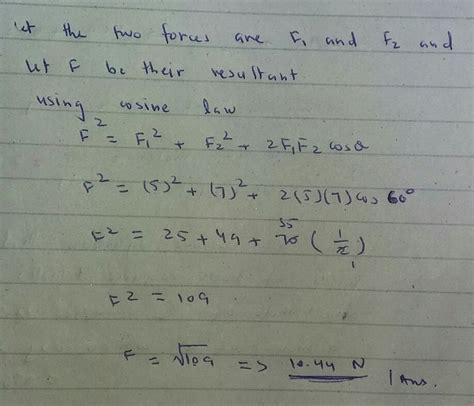 let the two forces are F₁ and F₂ and
let F be their resultant
using cosine law
F² = F₁² + F₂² + 2F₁F₂ cosθ
F² = (5)² + (7)² + 2(5)(7) cos 60°
F² = 25 + 49 + 70 35 (1/2)
F² = 109
F = √109 => 10.44 N | Ans.